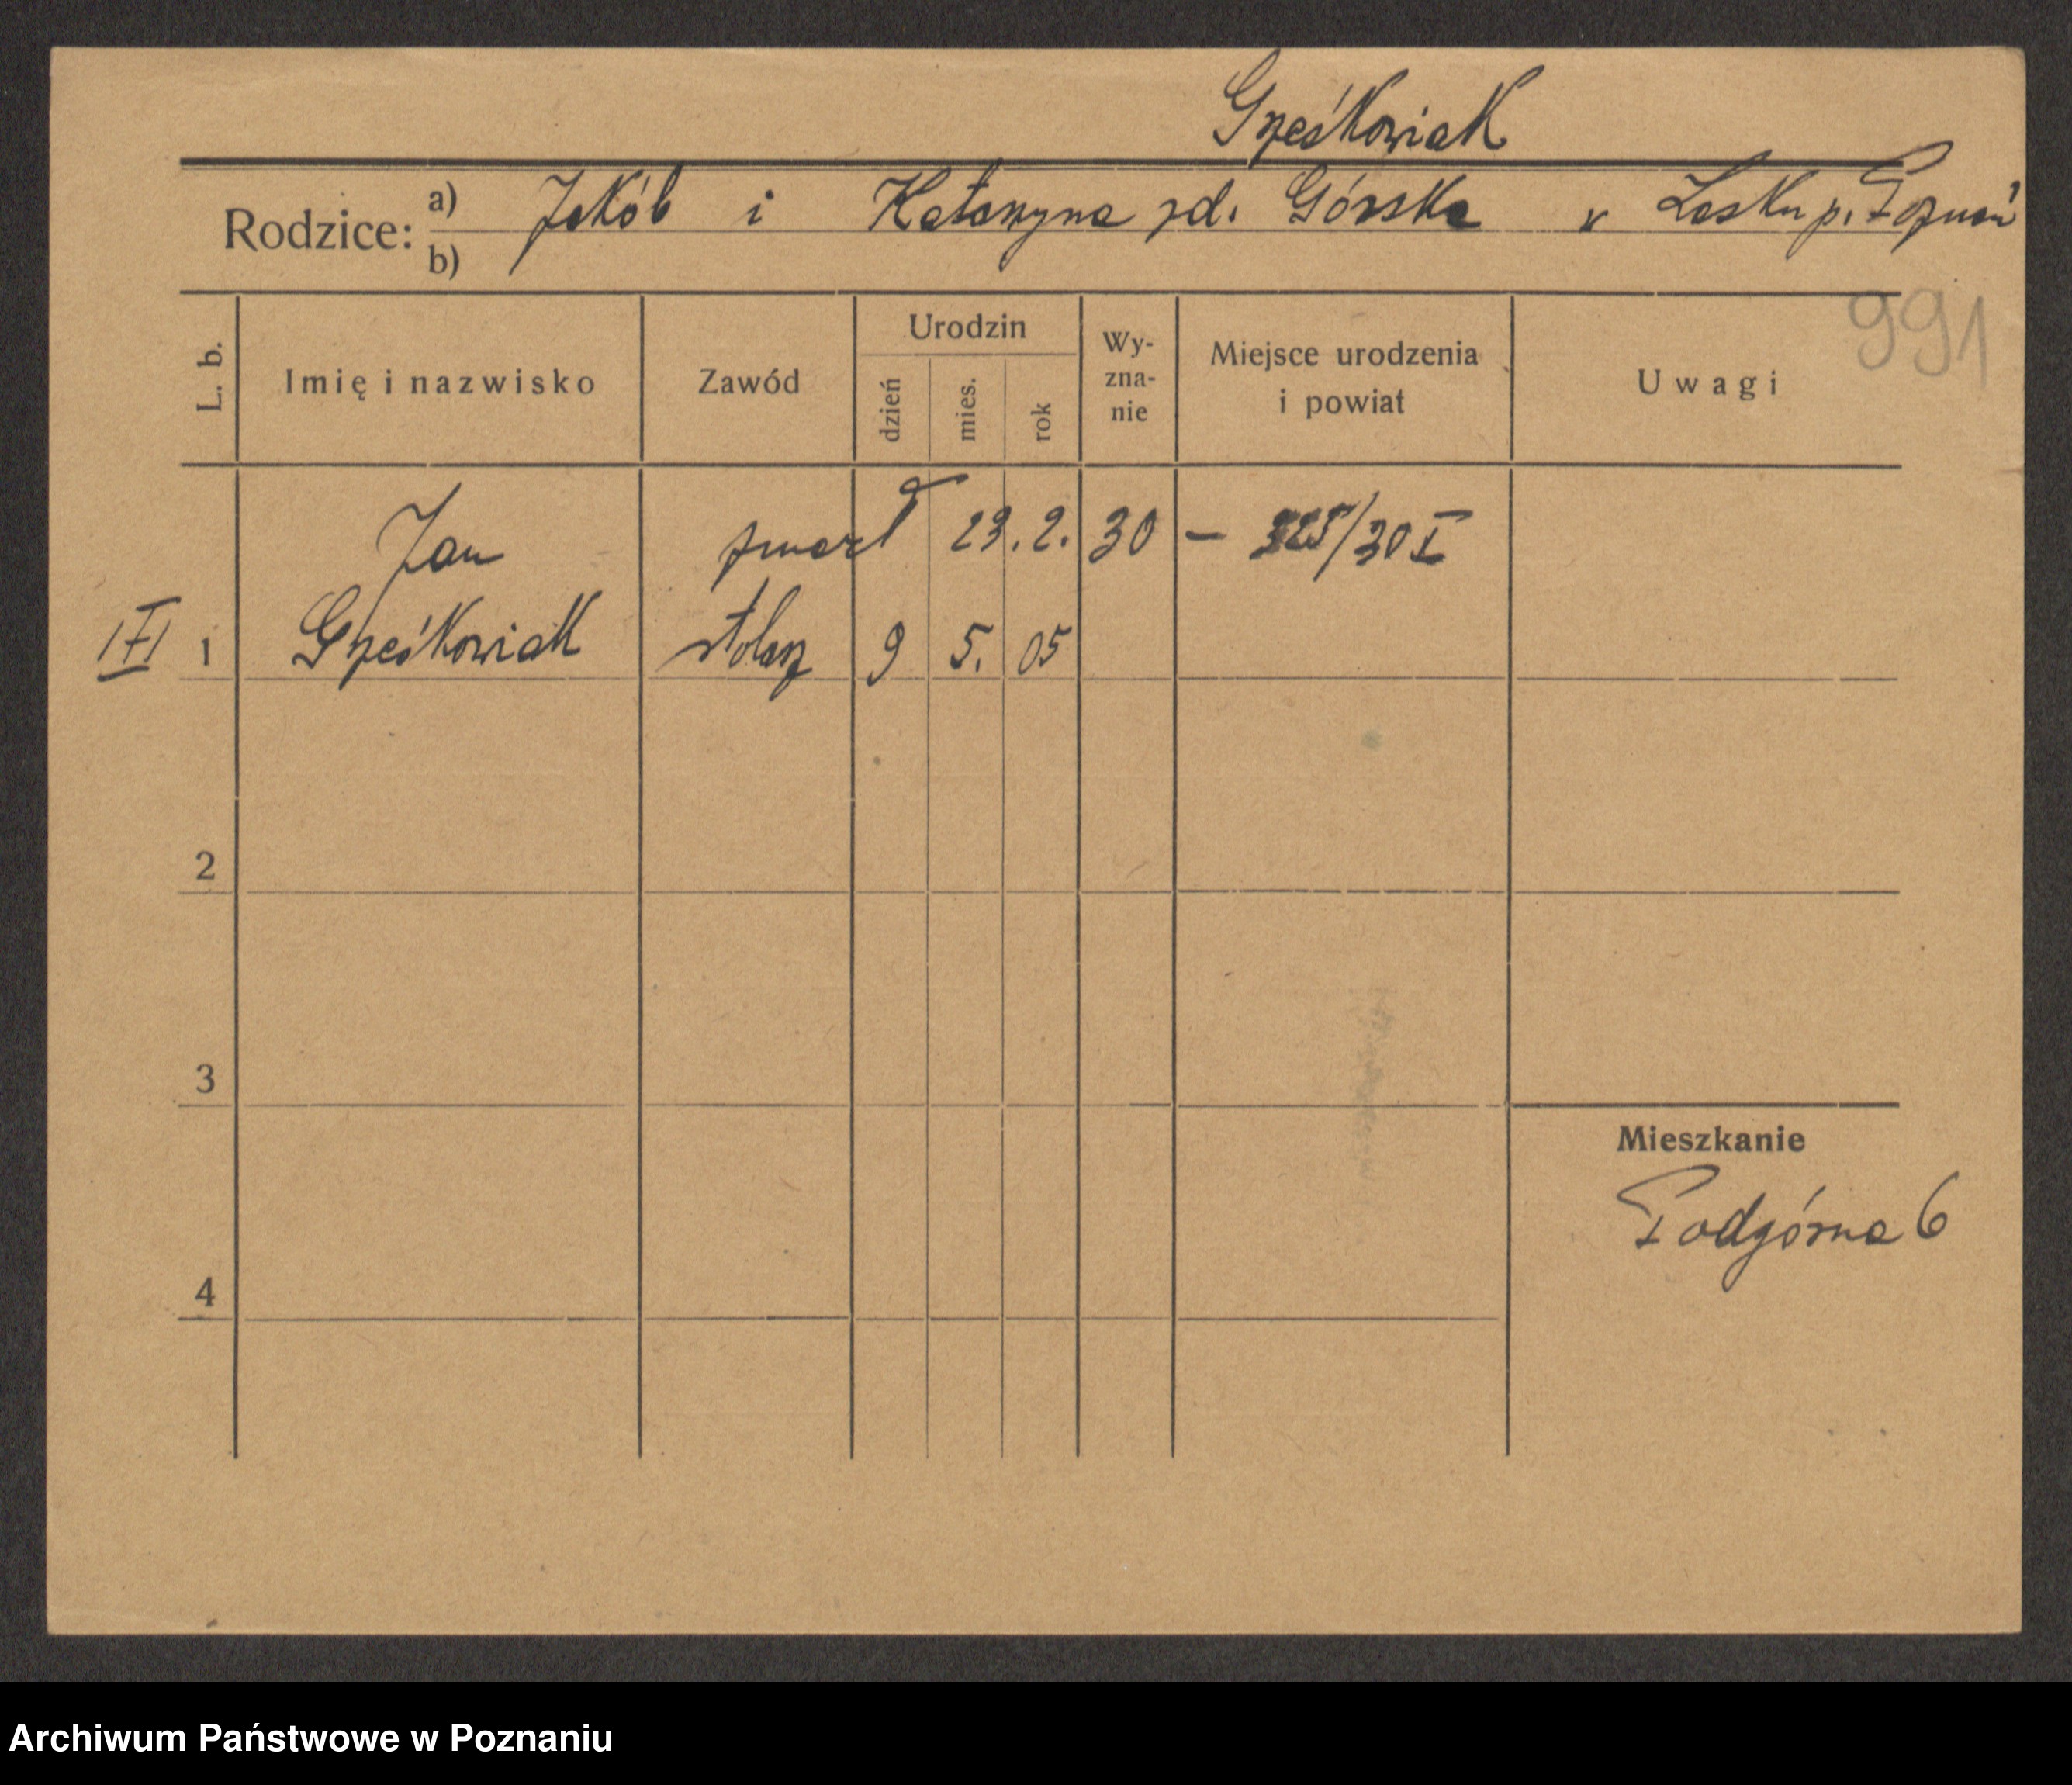 Grześkowiak
Rodzice: a) Jakób i Katarzyna zd. Górska w Lasku p. Poznań
b)
991
L. b. Imię i nazwisko Zawód Urodzin dzień mies. rok Wy-zna-nie Miejsce urodzenia i powiat Uwagi
Jan zmarł 23. 2. 30 – 325/30 I
IVI 1 Grześkowiak stolarz 9 5. 05
2
3
Mieszkanie
Podgórna 6
4
Archiwum Państwowe w Poznaniu